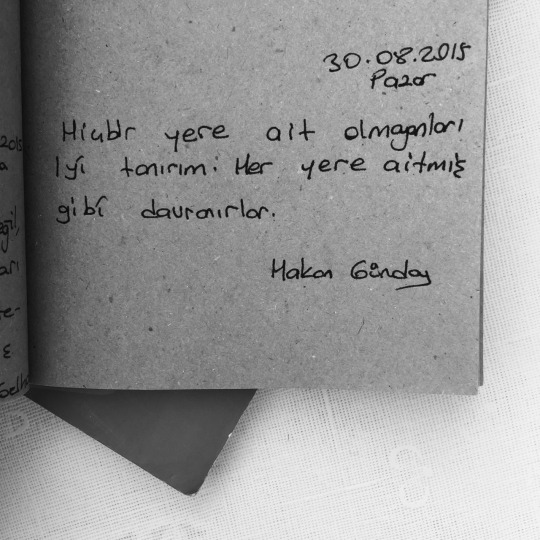 30.08.2015
Pazar
Hiçbir yere ait olmayanları
iyi tanırım. Her yere aitmiş
gibi davranırlar.
Hakan Günday